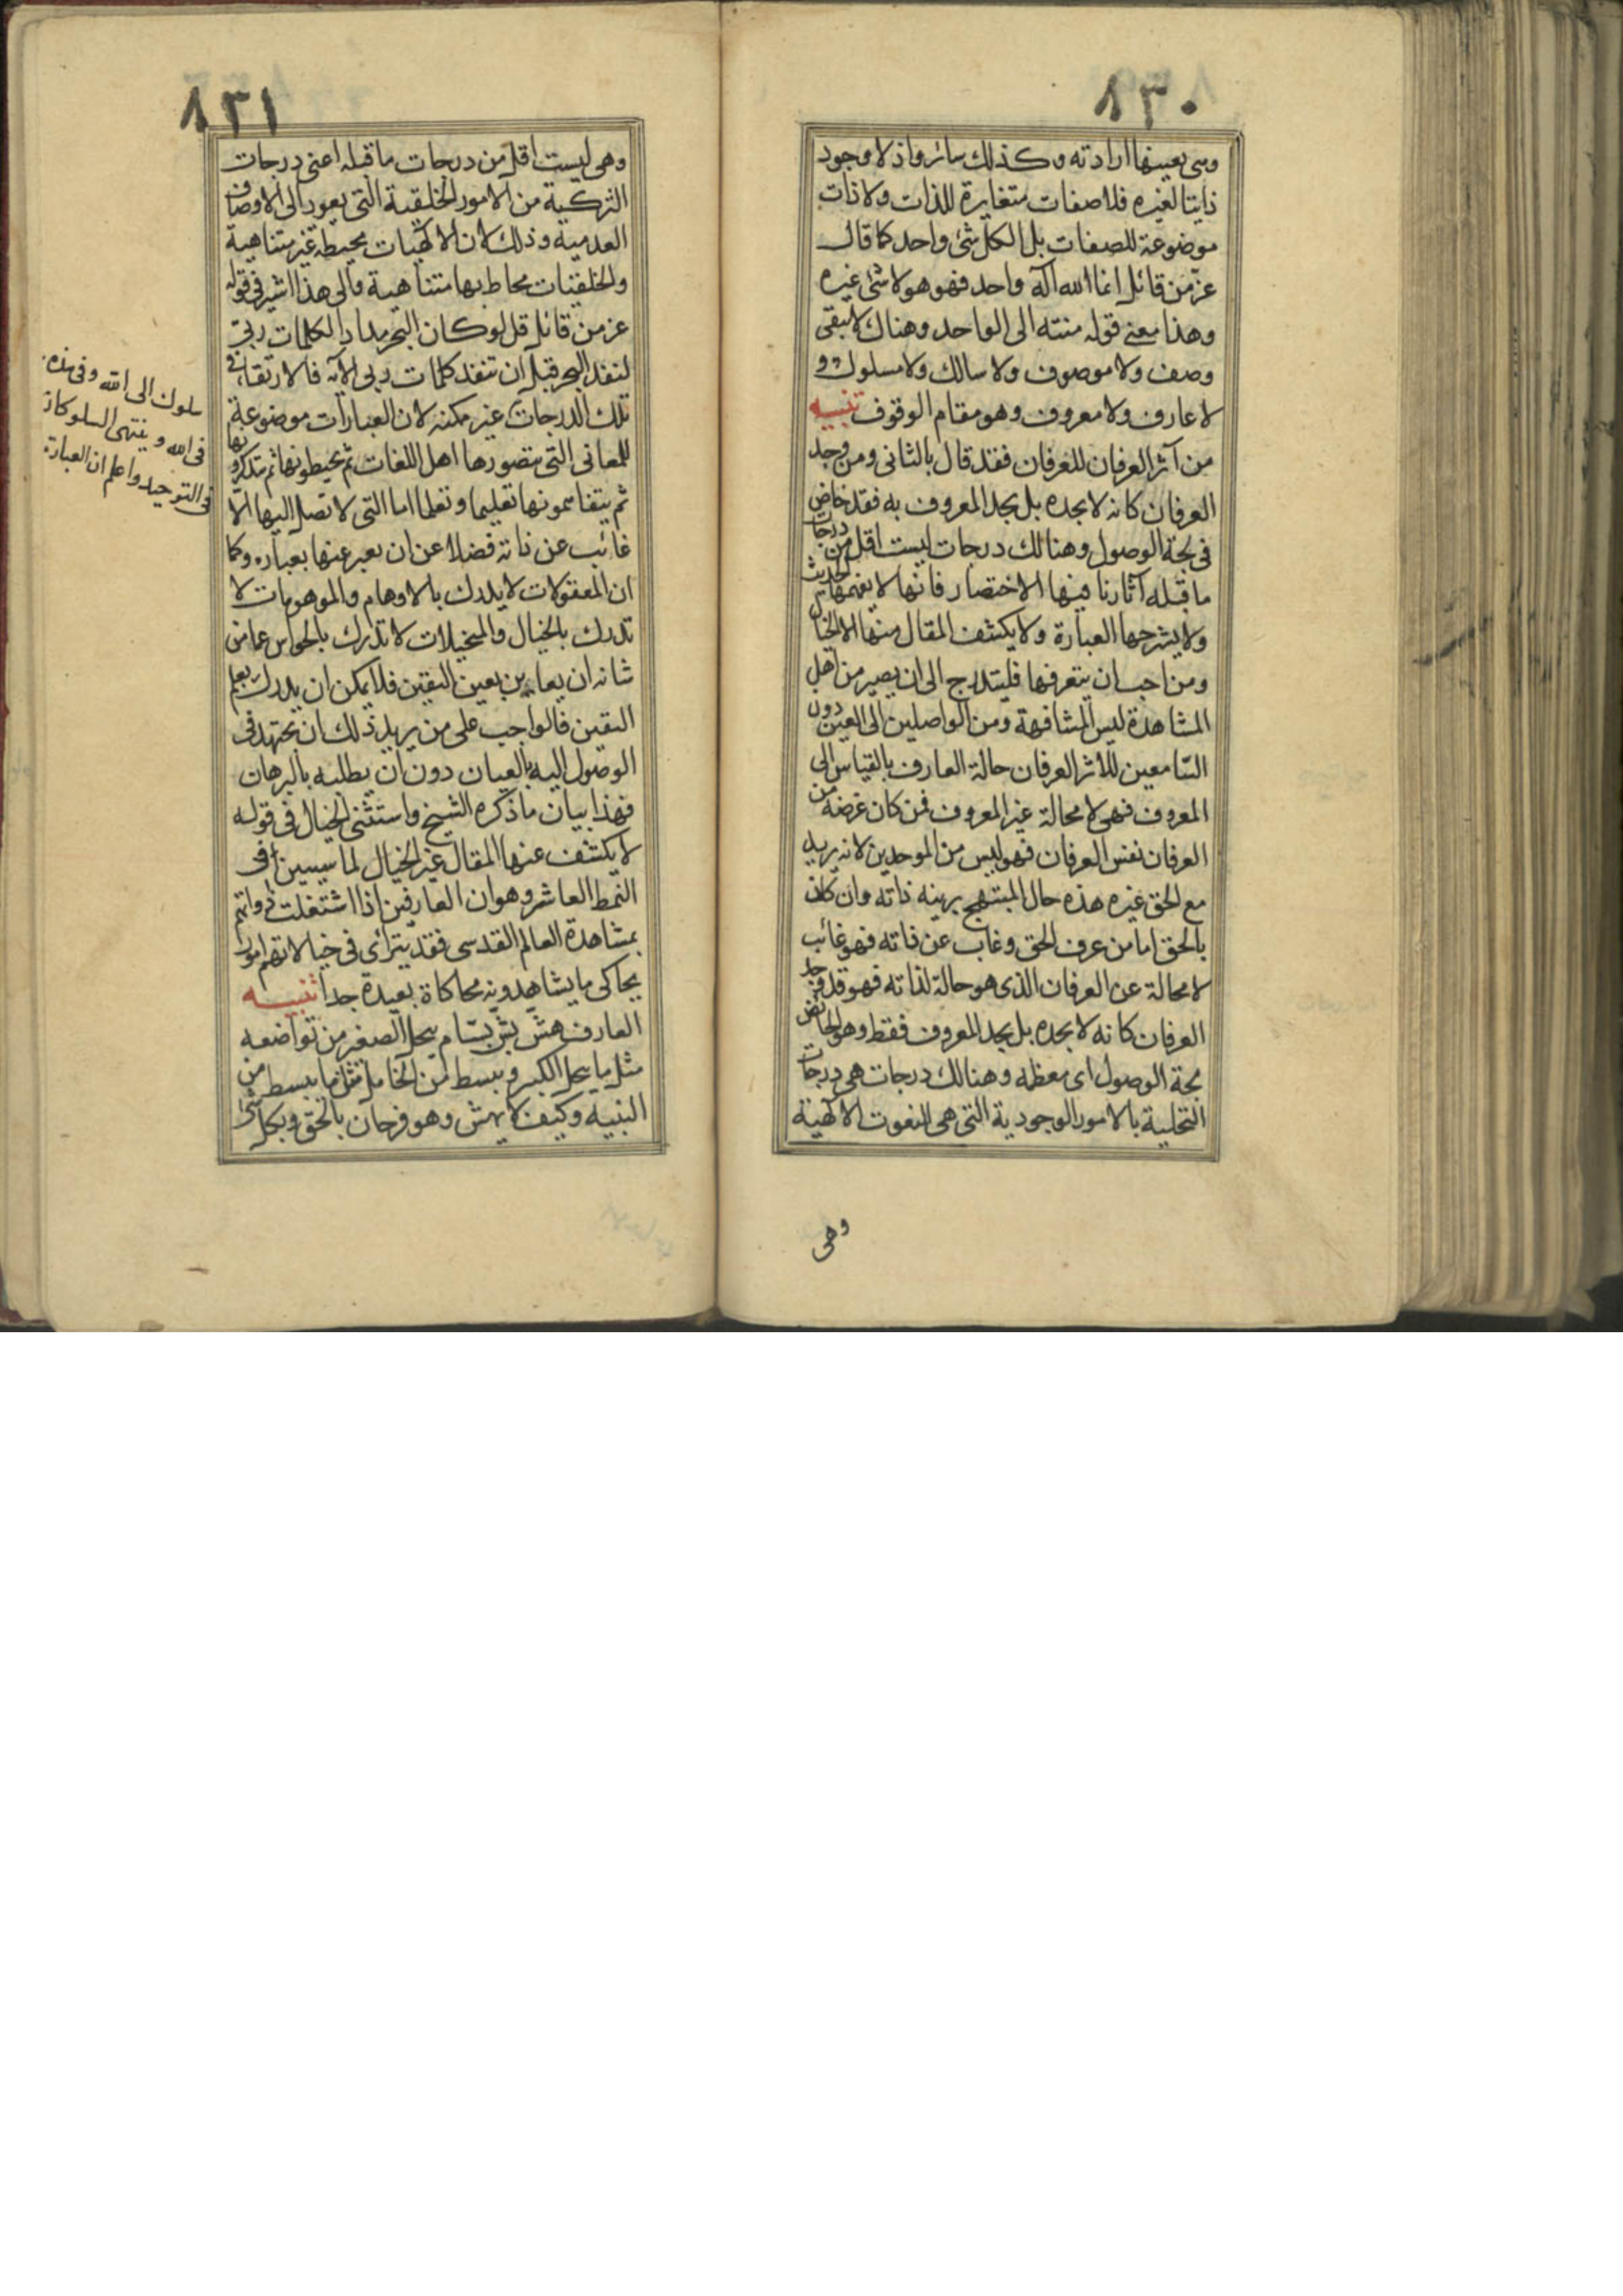 ٨٣٠
وهي بعينها ارادته وكذلك سائر واذ لا وجود
ذاتيا لغيره فلا صفات متغايرة للذات ولا ذات
موضوعة للصفات بل الكل شئ واحد كما قال
عز من قائل انما الله اله واحد فهو هو لا شئ غيره
وهذا معنى قوله منته الى الواحد وهناك لا يبقى
وصف ولا موصوف ولا سالك ولا مسلوك و
لا عارف ولا معروف وهو مقام الوقوف تنبيه
من آثر العرفان للعرفان فقد قال بالثاني ومن وجد
العرفان كانه لا يجده بل يجد المعروف به فقد خاض
في لجة الوصول وهنالك درجات ليست اقل من درجات
ما قبله آثرنا فيها الاختصار فانها لا يفهمها الحديث
ولا يشرحها العبارة ولا يكشف المقال منها الا الخيال
ومن احب ان يتعرفها فليتدرج الى ان يصير من اهل
المشاهدة ليس المشافهة ومن الواصلين الى العين دون
السامعين للاثر العرفان حالة العارف بالقياس الى
المعروف فهي لا محالة غير المعروف فمن كان غرضه من
العرفان نفس العرفان فهو ليس من الموحدين لانه يريد
مع الحق غيره هذه حال المبتهج بزينة ذاته وان كان
بالحق اما من عرف الحق وغاب عن ذاته فهو غائب
لا محالة عن العرفان الذي هو حالة لذاته فهو قد وجد
العرفان كانه لا يجده بل يجد المعروف فقط وهو الخائض
لجة الوصول اى معظمه وهنالك درجات هي درجات
التحلية بالامور الوجودية التي هي النعوت الالهية
وهي
٨٣١
وهي ليست اقل من درجات ما قبله اعني درجات
التزكية من الامور الخلقية التي يعود الى الاوصاف
العدمية وذلك لان الالهيات محيطة غير متناهية
والخلقيات محاط بها متناهية والى هذا اشير في قوله
عز من قائل قل لو كان البحر مدادا لكلمات ربى
لنفد البحر قبل ان تنفد كلمات ربى الآية فالارتقاء في
تلك الدرجات غير ممكنة لان العبارات موضوعة
للمعاني التي يتصورها اهل اللغات ثم يحيطونها ثم يتذكرو بها
ثم يتفاهمونها تعليما وتعلما اما التي لا تصل اليها الا
غائب عن ذاته فضلا عن ان يعبر عنها بعباره وكما
ان المعقولات لا يدرك بالاوهام والموهومات لا
تدرك بالخيال والمتخيلات لا تدرك بالحواس عما من
شانه ان يعاين بعين اليقين فلا يمكن ان يدرك بعلم
اليقين فالواجب على من يريد ذلك ان يجتهد في
الوصول اليه بالعيان دون ان يطلبه بالبرهان
فهذا بيان ما ذكره الشيخ واستثنى الخيال في قوله
لا يكشف عنها المقال غير الخيال لما سيبين في
النمط العاشر وهو ان العارفين اذا اشتغلت ذواتهم
بمشاهدة العالم القدسي فقد يتراى في خيالاتهم امور
يحاكى ما يشاهدونه محاكاة بعيدة جدا تنبيه
العارف هش بش بسام يبجل الصغير من تواضعه
مثل ما يبجل الكبير وينبسط من الخامل مثل ما ينبسط من
النبيه وكيف لا يهش وهو فرحان بالحق وبكل شئ
سلوك الى الله وفي هذه
في الله و ينتهى السلوكان
في التوحيد واعلم ان العبارة